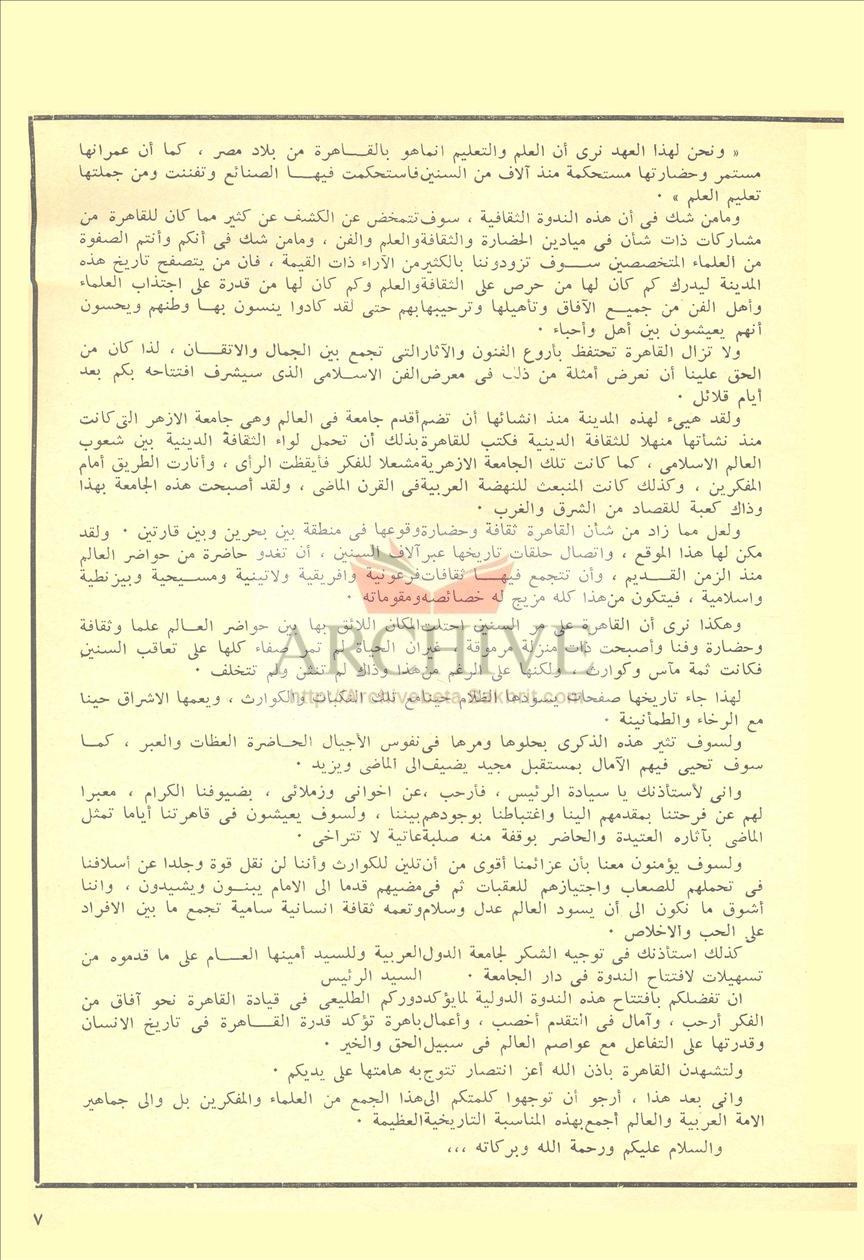 « ونحن لهذا العهد نرى أن العلم والتعليم انماهو بالقــــاهرة من بلاد مصر ، كما أن عمرانها
مستمر وحضارتها مستحكمة منذ آلاف من السنين فاستحكمت فيهـــا الصنائع وتفننت ومن جملتها
تعليم العلم » ·
ومامن شك فى أن هذه الندوة الثقافية ، سوف تتمخض عن الكشف عن كثير مما كان للقاهرة من
مشاركات ذات شأن فى ميادين الحضارة والثقافة والعلم والفن ، ومامن شك فى أنكم وأنتم الصفوة
من العلماء المتخصصين ســـوف تزودوننا بالكثير من الآراء ذات القيمة ، فان من يتصفح تاريخ هذه
المدينة ليدرك كم كان لها من حرص على الثقافة والعلم وكم كان لها من قدرة على اجتذاب العلماء
وأهل الفن من جميــع الآفاق وتأهيلها وترحيبها بهم حتى لقد كادوا ينسون بهـــا وطنهم ويحسون
أنهم يعيشون بين أهل وأحباء ·
ولا تزال القاهرة تحتفظ بأروع الفنون والآثار التى تجمع بين الجمال والاتقــــان ، لذا كان من
الحق علينا أن نعرض أمثلة من ذلك فى معرض الفن الاســلامى الذى سيشرف افتتاحه بكم بعد
أيام قلائل ·
ولقد هيىء لهذه المدينة منذ انشائها أن تضم أقدم جامعة فى العالم وهى جامعة الازهر التى كانت
منذ نشأتها منهلا للثقافة الدينية فكتب للقاهرة بذلك أن تحمل لواء الثقافة الدينية بين شعوب
العالم الاسلامى ، كما كانت تلك الجامعة الازهرية مشعلا للفكر فأيقظت الرأى ، وأنارت الطريق أمام
المفكرين ، وكذلك كانت المنبعث للنهضة العربية فى القرن الماضى ، ولقد أصبحت هذه الجامعة بهذا
وذاك كعبة للقصاد من الشرق والغرب ·
ولعل مما زاد من شأن القاهرة ثقافة وحضارة وقوعها فى منطقة بين بحرين وبين قارتين · ولقد
مكن لها هذا الموقع ، واتصال حلقات تاريخها عبر آلاف السنين ، أن تغدو حاضرة من حواضر العالم
منذ الزمن القـــديم ، وأن تتجمع فيهـــا ثقافات فرعونية وافريقية ولاتينية ومســيحية وبيزنطية
واسلامية ، فيتكون من هذا كله مزيج له خصائصه ومقوماته ·
وهكذا نرى أن القاهرة على مر السنين احتلت المكان اللائق بها بين حواضر العــالم علما وثقافة
وحضارة وفنا وأصبحت ذات منزلة مرموقة ، غير أن الحياة لم تمر صفاء كلها على تعاقب السنين
فكانت ثمة مآس وكوارث ، ولكنها على الرغم من هذا وذاك لم تنثن ولم تتخلف ·
لهذا جاء تاريخها صفحات يسودها الظلام حينا مع تلك النكبات والكوارث ، ويعمها الاشراق حينا
مع الرخاء والطمأنينة ·
ولسوف تثير هذه الذكرى بحلوها ومرها فى نفوس الأجيال الحــاضرة العظات والعبر ، كمــا
سوف تحيى فيهم الآمال بمستقبل مجيد يضيف الى الماضى ويزيد ·
وانى لأستأذنك يا سيادة الرئيس ، فأرحب ، عن اخوانى وزملائى ، بضيوفنا الكرام ، معبرا
لهم عن فرحتنا بمقدمهم الينا واغتباطنا بوجودهم بيننا ، ولسوف يعيشون فى قاهرتنا أياما تمثل
الماضى بآثاره العتيدة والحاضر بوقفة منه صلبة عاتية لا تتراخى ·
ولسوف يؤمنون معنا بأن عزائمنا أقوى من أن تلين للكوارث وأننا لن نقل قوة وجلدا عن أسلافنا
فى تحملهم للصعاب واجتيازهم للعقبات ثم فى مضيهم قدما الى الامام يبنــون ويشيدون ، واننا
أشوق ما نكون الى أن يسود العالم عدل وسلام وتعمه ثقافة انسانية سامية تجمع ما بين الافراد
على الحب والاخلاص ·
كذلك استأذنك فى توجيه الشكر لجامعة الدول العربية وللسيد أمينها العــــام على ما قدموه من
تسهيلات لافتتاح الندوة فى دار الجامعة · السيد الرئيس
ان تفضلكم بافتتاح هذه الندوة الدولية لما يؤكد دوركم الطليعى فى قيادة القاهرة نحو آفاق من
الفكر أرحب ، وآمال فى التقدم أخصب ، وأعمال باهرة تؤكد قدرة القـــاهرة فى تاريخ الانسان
وقدرتها على التفاعل مع عواصم العالم فى سبيل الحق والخير ·
ولتشهدن القاهرة باذن الله أعز انتصار تتوج به هامتها على يديكم ·
وانى بعد هذا ، أرجو أن توجهوا كلمتكم الى هذا الجمع من العلماء والمفكرين بل والى جماهير
الامة العربية والعالم أجمع بهذه المناسبة التاريخية العظيمة ·
والسلام عليكم ورحمة الله وبركاته ،،،
ARCHIVE
http://Archivebeta.Sakhrit.com
٧